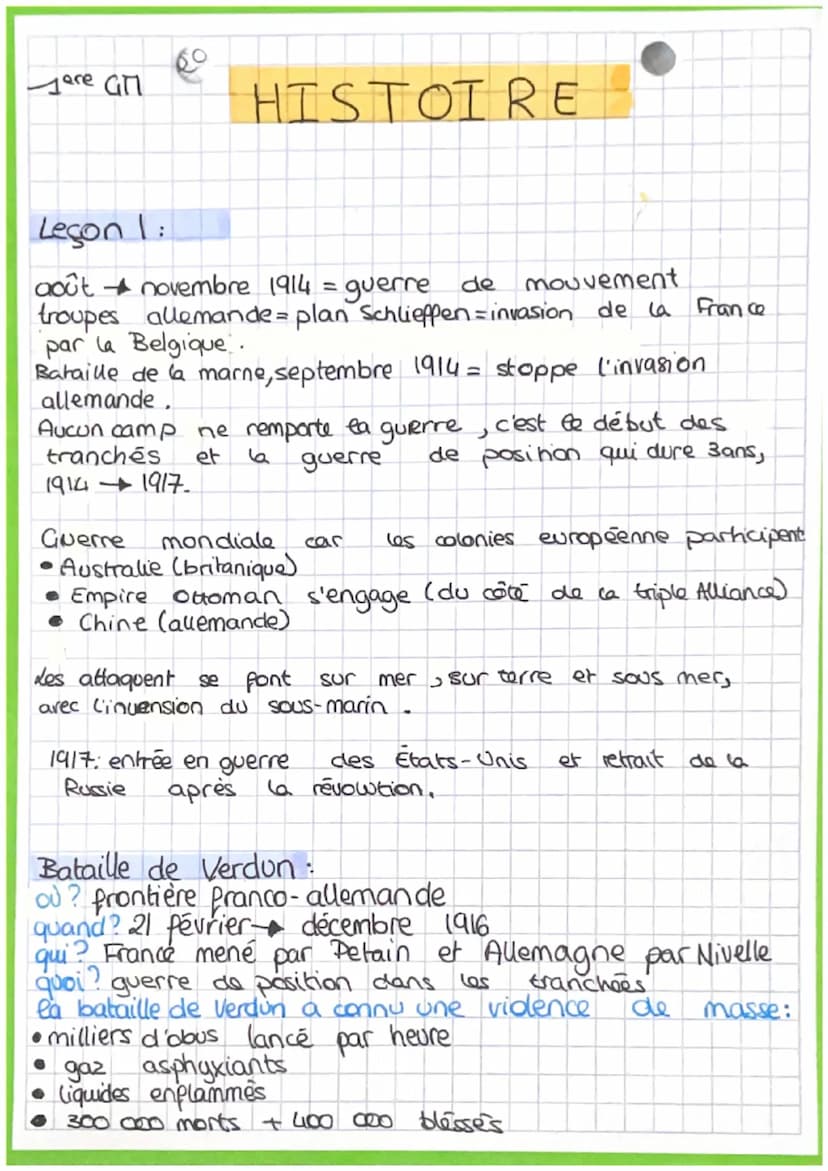 1ere GM
HISTOIRE
Leçon 1 :
août → novembre 1914 = guerre de mouvement
troupes allemande = plan Schlieffen = invasion de la France
par la Belgique.
Bataille de la marne, septembre 1914 = stoppe l'invasion
allemande.
Aucun camp ne remporte la guerre, c'est le début des
tranchés et la guerre de position qui dure 3ans,
1914 → 1917.
Guerre mondiale car les colonies européenne participent
• Australie (britanique)
• Empire Ottoman s'engage (du côté de la triple Alliance)
• Chine (allemande)
Les attaquent se font sur mer, sur terre et sous mer,
avec l'invension du sous-marin.
1917: entrée en guerre des États-Unis et retrait de la
Russie après la révolution.
Bataille de Verdun :
où ? frontière franco-allemande
quand ? 21 février → décembre 1916
qui ? France mené par Petain et Allemagne par Nivelle
quoi ? guerre de position dans les tranchées
la bataille de Verdun a connu une violence de masse :
• milliers d'obus lancé par heure
• gaz asphyxiants
• liquides enflammés
• 300 000 morts + 400 000 bléssés